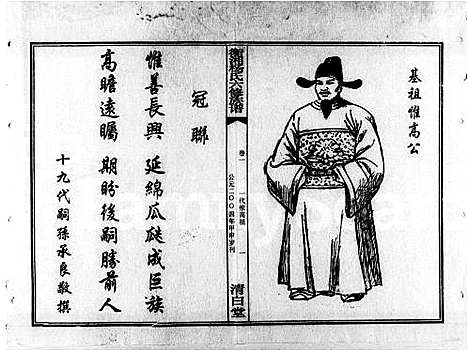 基祖惟高公
衡湘杨氏六修族谱
卷一
一代惟高祖
一
公元二〇〇四年甲申岁刊
清白堂
冠聯
惟善長興 延綿瓜瓞成巨族
高瞻遠矚 期盼後嗣勝前人
十九代嗣孫承良敬撰